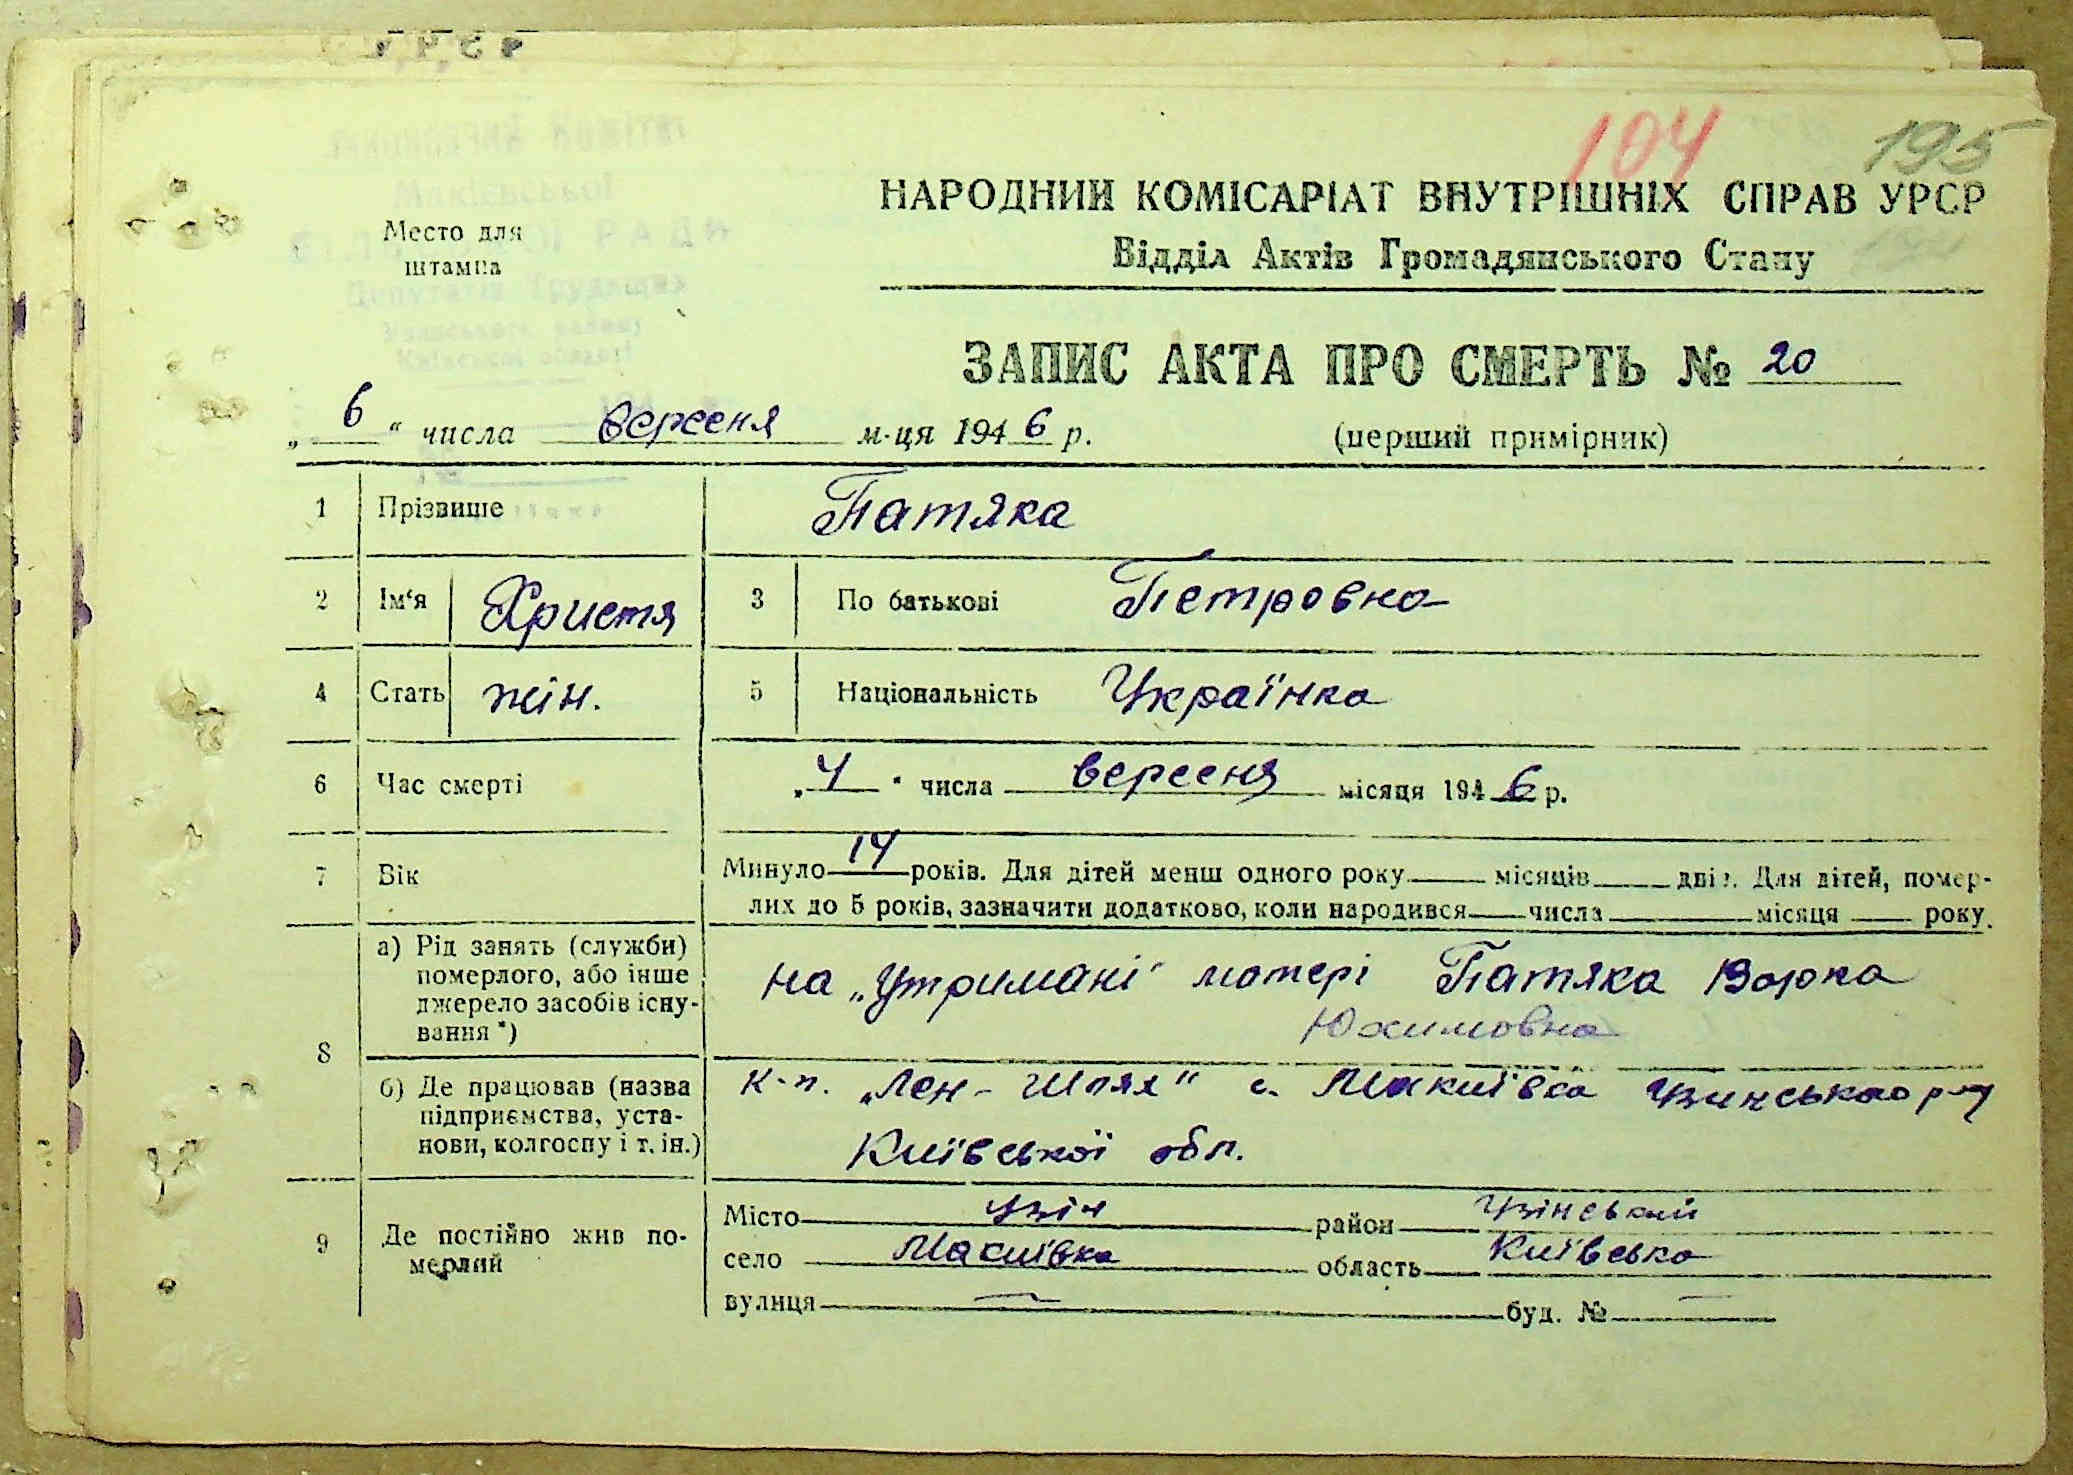 104 195
НАРОДНИЙ КОМІСАРІАТ ВНУТРІШНІХ СПРАВ УРСР
Відділ Актів Громадянського Стану
Место для
штампа
ЗАПИС АКТА ПРО СМЕРТЬ № 20
„ 6 “ числа вересня м-ця 1946 р. (перший примірник)
1 Прізвище Патяка
2 Ім‘я Христя 3 По батькові Петровна
4 Стать жін. 5 Національність Українка
6 Час смерті „ 4 “ числа вересня місяця 1946 р.
7 Вік Минуло 14 років. Для дітей менш одного року місяців днів. Для дітей, помер-
лих до 5 років, зазначити додатково, коли народився числа місяця року.
8 а) Рід занять (служби)
померлого, або інше
джерело засобів існу-
вання *)
на „Утримані матері Патяка Варка
Юхимовна
б) Де працював (назва
підприємства, уста-
нови, колгоспу і т. ін.)
к-п. „Лен-Шлях“ с. Макиївка
Київської обл.
9 Де постійно жив по-
мерлий
Місто Узін район Узінський
село Макиївка область Київська
вулиця — буд. № —